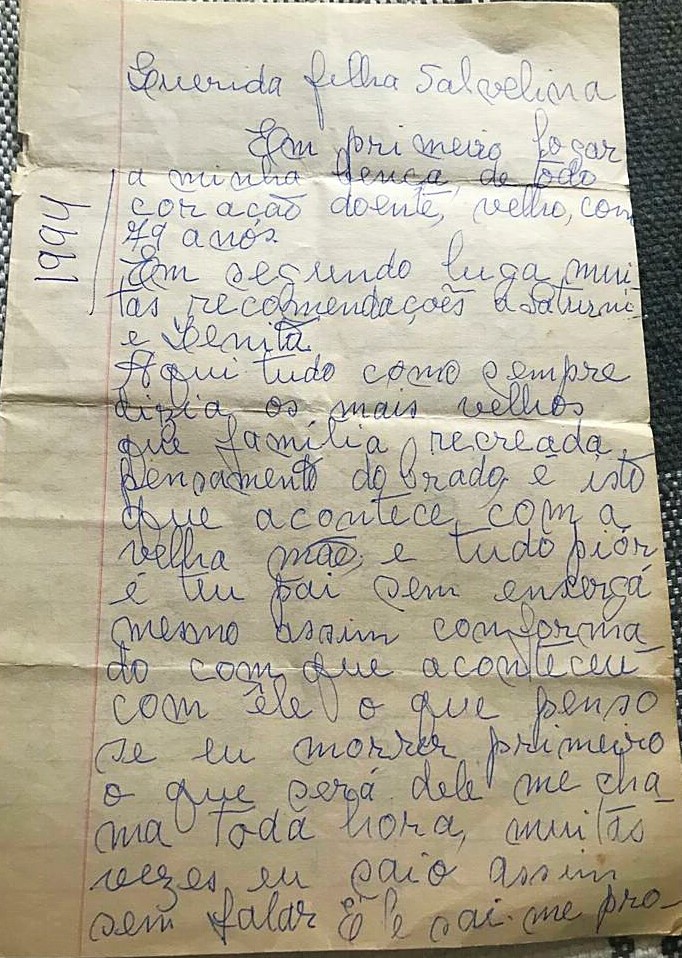 Querida filha Salvelina
Em primeiro logar
a minha bença, de todo
coração doente, velho, com
79 anos.
1994
Em segundo luga, mui-
tas recomendações a Saturni-
e Lenita.
Aqui tudo como sempre
dizia os mais velhos
que família recreada,
pensamento dobrado é isto
que acontece, com a
velha mãe, e tudo piór
é teu pai sem enxergá
mesmo assim conforma-
do com que aconteceu
com êle o que penso
se eu morrer primeiro
o que será dele me cha-
ma toda hora, muitas
vezes eu saio assim
sem falar Êle sai me pro-